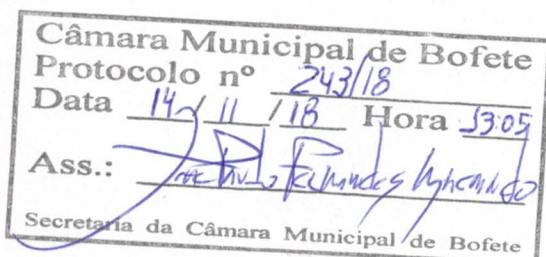 Câmara Municipal de Bofete
Protocolo nº 243/18
Data 14 / 11 / 18 Hora 13:05
Ass.: Fernandes
Secretaria da Câmara Municipal de Bofete